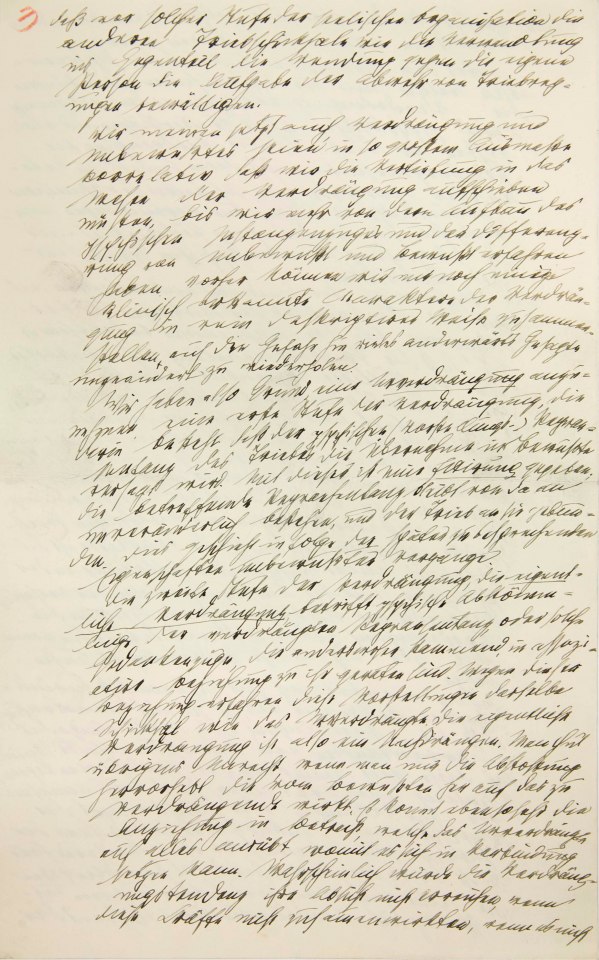 3
daß vor solcher Stufe der seelischen Organisation die
anderen Triebschicksale wie die Verwandlung
ins Gegenteil die Wendung gegen die eigene
Person die Aufgabe der Abwehr von Triebreg-
ungen bewältigen.
Wir meinen jetzt auch Verdrängung und
Unbewußtes seien in so großem Ausmaße
correlativ daß wir die Vertiefung in das
Wesen der Verdrängung aufschieben
müssen, bis wir mehr von dem Aufbau des
psychischen Instanzenzuges und der Differenzi-
rung von Unbewußt und Bewußt erfahren
haben. Vorher können wir nur noch einige
klinisch erkannte Charaktere der Verdrän-
gung in rein deskriptiver Weise zusammen-
stellen, auf die Gefahr hin vieles anderwärts Gesagte
ungeändert zu wiederholen.
Wir haben also Grund eine Urverdrängung anzu-
nehmen, eine erste Phase der Verdrängung, die
darin besteht daß der psychischen (Vorstellungs-) Repräsen-
tanz des Triebes die Übernahme ins Bewußte
versagt wird. Mit dieser ist eine Fixirung gegeben,
die betreffende Repräsentanz bleibt von da an
unveränderlich bestehen, und der Trieb an sie gebun-
den. Dies geschieht infolge der später zu besprechenden
Eigenschaften unbewußter Vorgänge.
Die zweite Stufe der Verdrängung, die eigent-
liche Verdrängung betrifft psychische Abkömm-
linge der verdrängten Repräsentanz oder solche
Gedankenzüge, die anderswoher stammend in assozi-
ative Beziehung zu ihr geraten sind. Wegen dieser
Beziehung erfahren diese Vorstellungen dasselbe
Schicksal wie das Urverdrängte. Die eigentliche
Verdrängung ist also ein Nachdrängen. Man thut
übrigens Unrecht, wenn man nur die Abstoßung
hervorhebt die vom Bewußten her auf das zu
Verdrängende wirkt. Es kommt ebenso sehr die
Anziehung in Betracht, welche das Urverdrängte
auf alles ausübt, womit es sich in Verbindung
setzen kann. Wahrscheinlich würde die Verdräng-
ungstendenz ihre Absicht nicht erreichen, wenn
diese Kräfte nicht zusammenwirkten, wenn es nicht